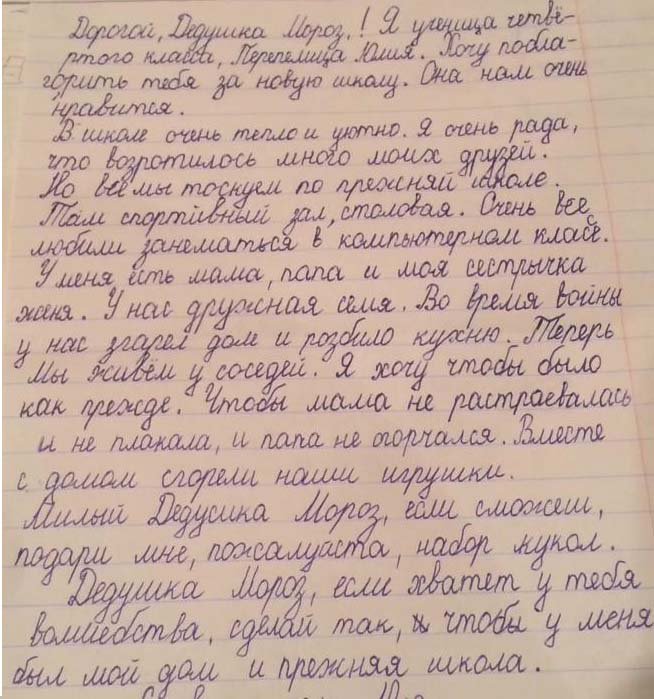 Дорогой, Дедушка Мороз,! Я ученица четвё-
ртого класса, Перепелица Юлия. Хочу побла-
горить тебя за новую школу. Она нам очень
нравится.
В школе очень тепло и уютно. Я очень рада,
что возротилось много моих друзей.
Но все мы тоскуем по прежняй школе.
Там спортивный зал, столовая. Очень все
любили занематься в компьютерном класе.
У меня есть мама, папа и моя сестрычка
женя. У нас дружная семя. Во время войны
у нас згарел дом и розбило кухню. Теперь
мы живём у соседей. Я хочу чтобы было
как прежде. Чтобы мама не растраевалась
и не плакала, и папа не огорчался. Вместе
с домом сгорели наши игрушки.
Милый Дедушка Мороз, если сможеш,
подари мне, пожалуйста, набор кукол.
Дедушка Мороз, если хватет у тебя
волшебства, сделай так, чтобы у меня
был мой дом и прежняя школа.